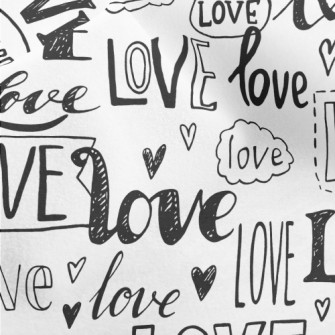 LOVE
love
LOVE
love
love
love
LOVE
love
LOVE